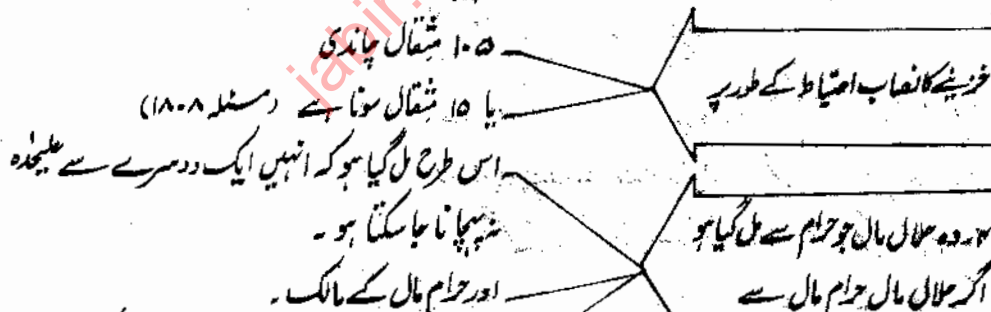 خزینے کا نصاب احتیاط کے طور پر
۱۰۵ مثقال چاندی
یا ۱۵ مثقال سونا ہے (مسئلہ ۱۸۰۸)
۴۔ وہ حلال مال جو حرام سے مل گیا ہو
اگر حلال مال حرام مال سے
اس طرح مل گیا ہو کہ انہیں ایک دوسرے سے علیحدہ
نہ پہچانا جا سکتا ہو ۔
اور حرام مال کے مالک ۔
jabir.